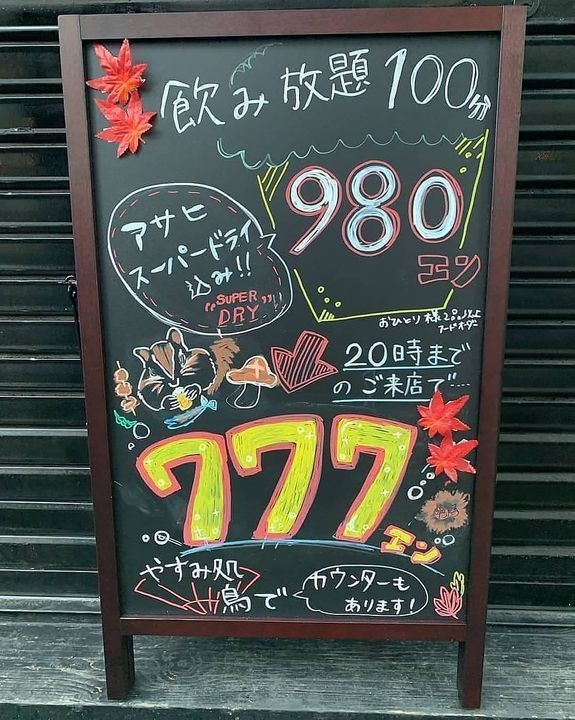 飲み放題100分
980
エン
アサヒ
スーパードライ
込み!!
"SUPER
DRY"
おひとり様2品以上
フードオーダー
20時まで
のご来店で...
777
エン
やすみ処
鳥で
カウンターも
あります!